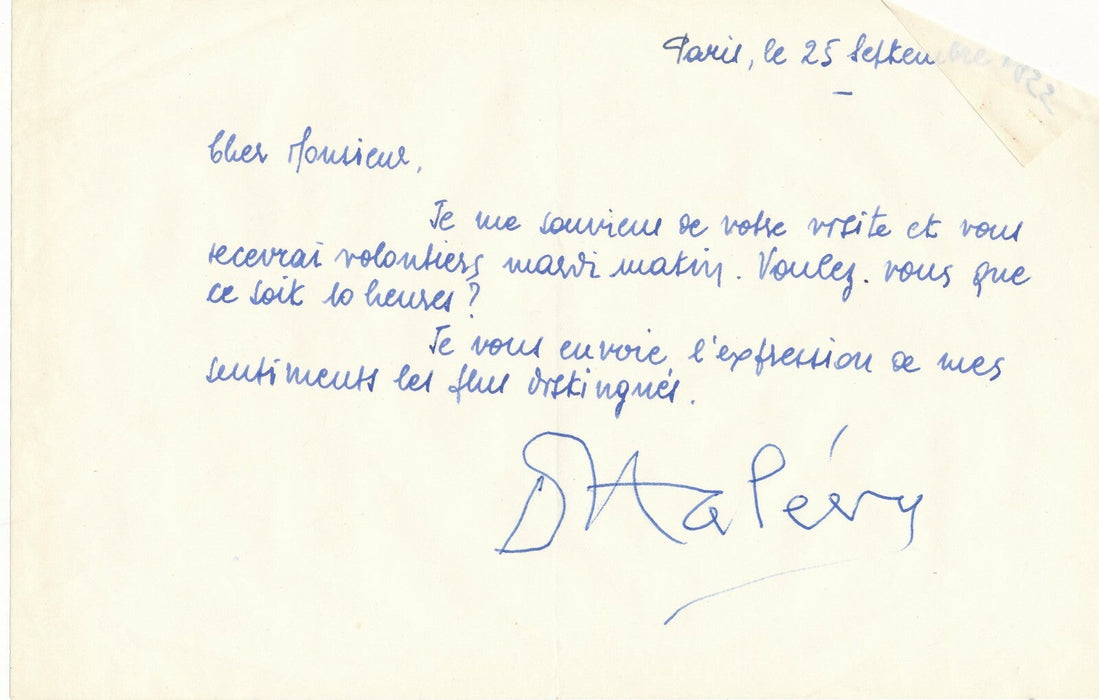 Paris, le 25 Septem
Cher Monsieur,
Je me souviens de votre visite et vous
recevrai volontiers mardi matin. Voulez-vous que
ce soit 10 heures ?
Je vous envoie l'expression de mes
sentiments les plus distingués.
D Halévy